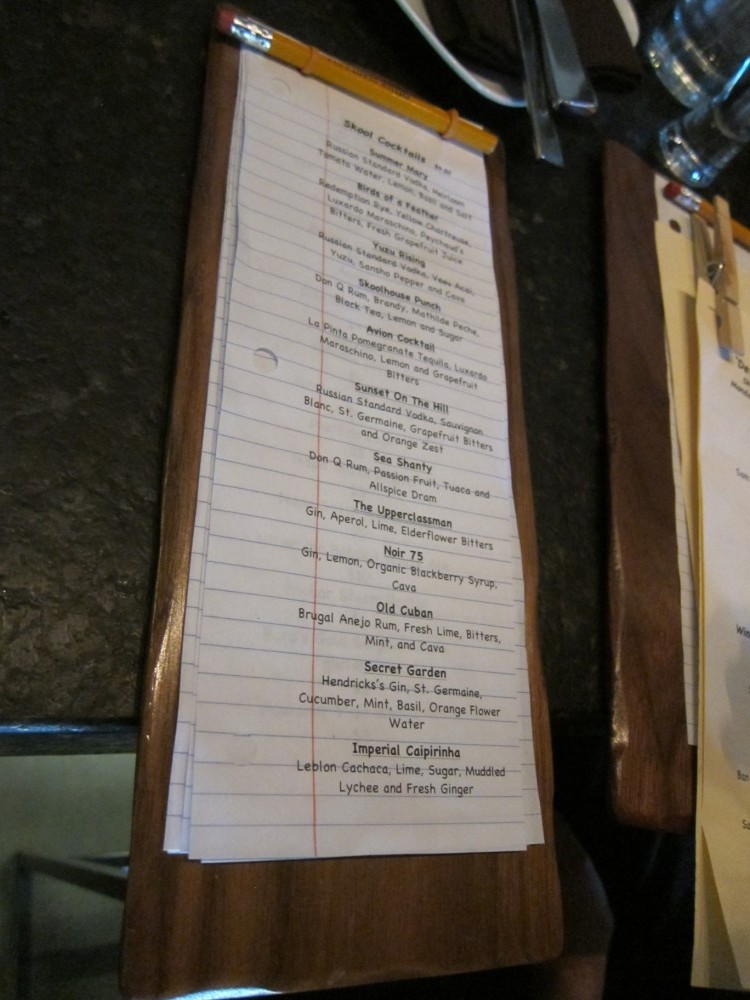 Skool Cocktails
Summer Mary
Russian Standard Vodka, Heirloom
Tomato Water, Lemon, Basil and Salt
Birds of a Feather
Redemption Rye, Yellow Chartreuse,
Luxardo Maraschino, Peychaud's
Bitters, Fresh Grapefruit Juice
Yuzu Rising
Russian Standard Vodka, Veev Acai,
Yuzu, Sansho Pepper and Cava
Skoolhouse Punch
Don Q Rum, Brandy, Mathilde Peche,
Black Tea, Lemon and Sugar
Avion Cocktail
La Pinta Pomegranate Tequila, Luxardo
Maraschino, Lemon and Grapefruit
Bitters
Sunset On The Hill
Russian Standard Vodka, Sauvignon
Blanc, St. Germaine, Grapefruit Bitters
and Orange Zest
Sea Shanty
Don Q Rum, Passion Fruit, Tuaca and
Allspice Dram
The Upperclassman
Gin, Aperol, Lime, Elderflower Bitters
Noir 75
Gin, Lemon, Organic Blackberry Syrup,
Cava
Old Cuban
Brugal Anejo Rum, Fresh Lime, Bitters,
Mint, and Cava
Secret Garden
Hendricks's Gin, St. Germaine,
Cucumber, Mint, Basil, Orange Flower
Water
Imperial Caipirinha
Leblon Cachaca, Lime, Sugar, Muddled
Lychee and Fresh Ginger